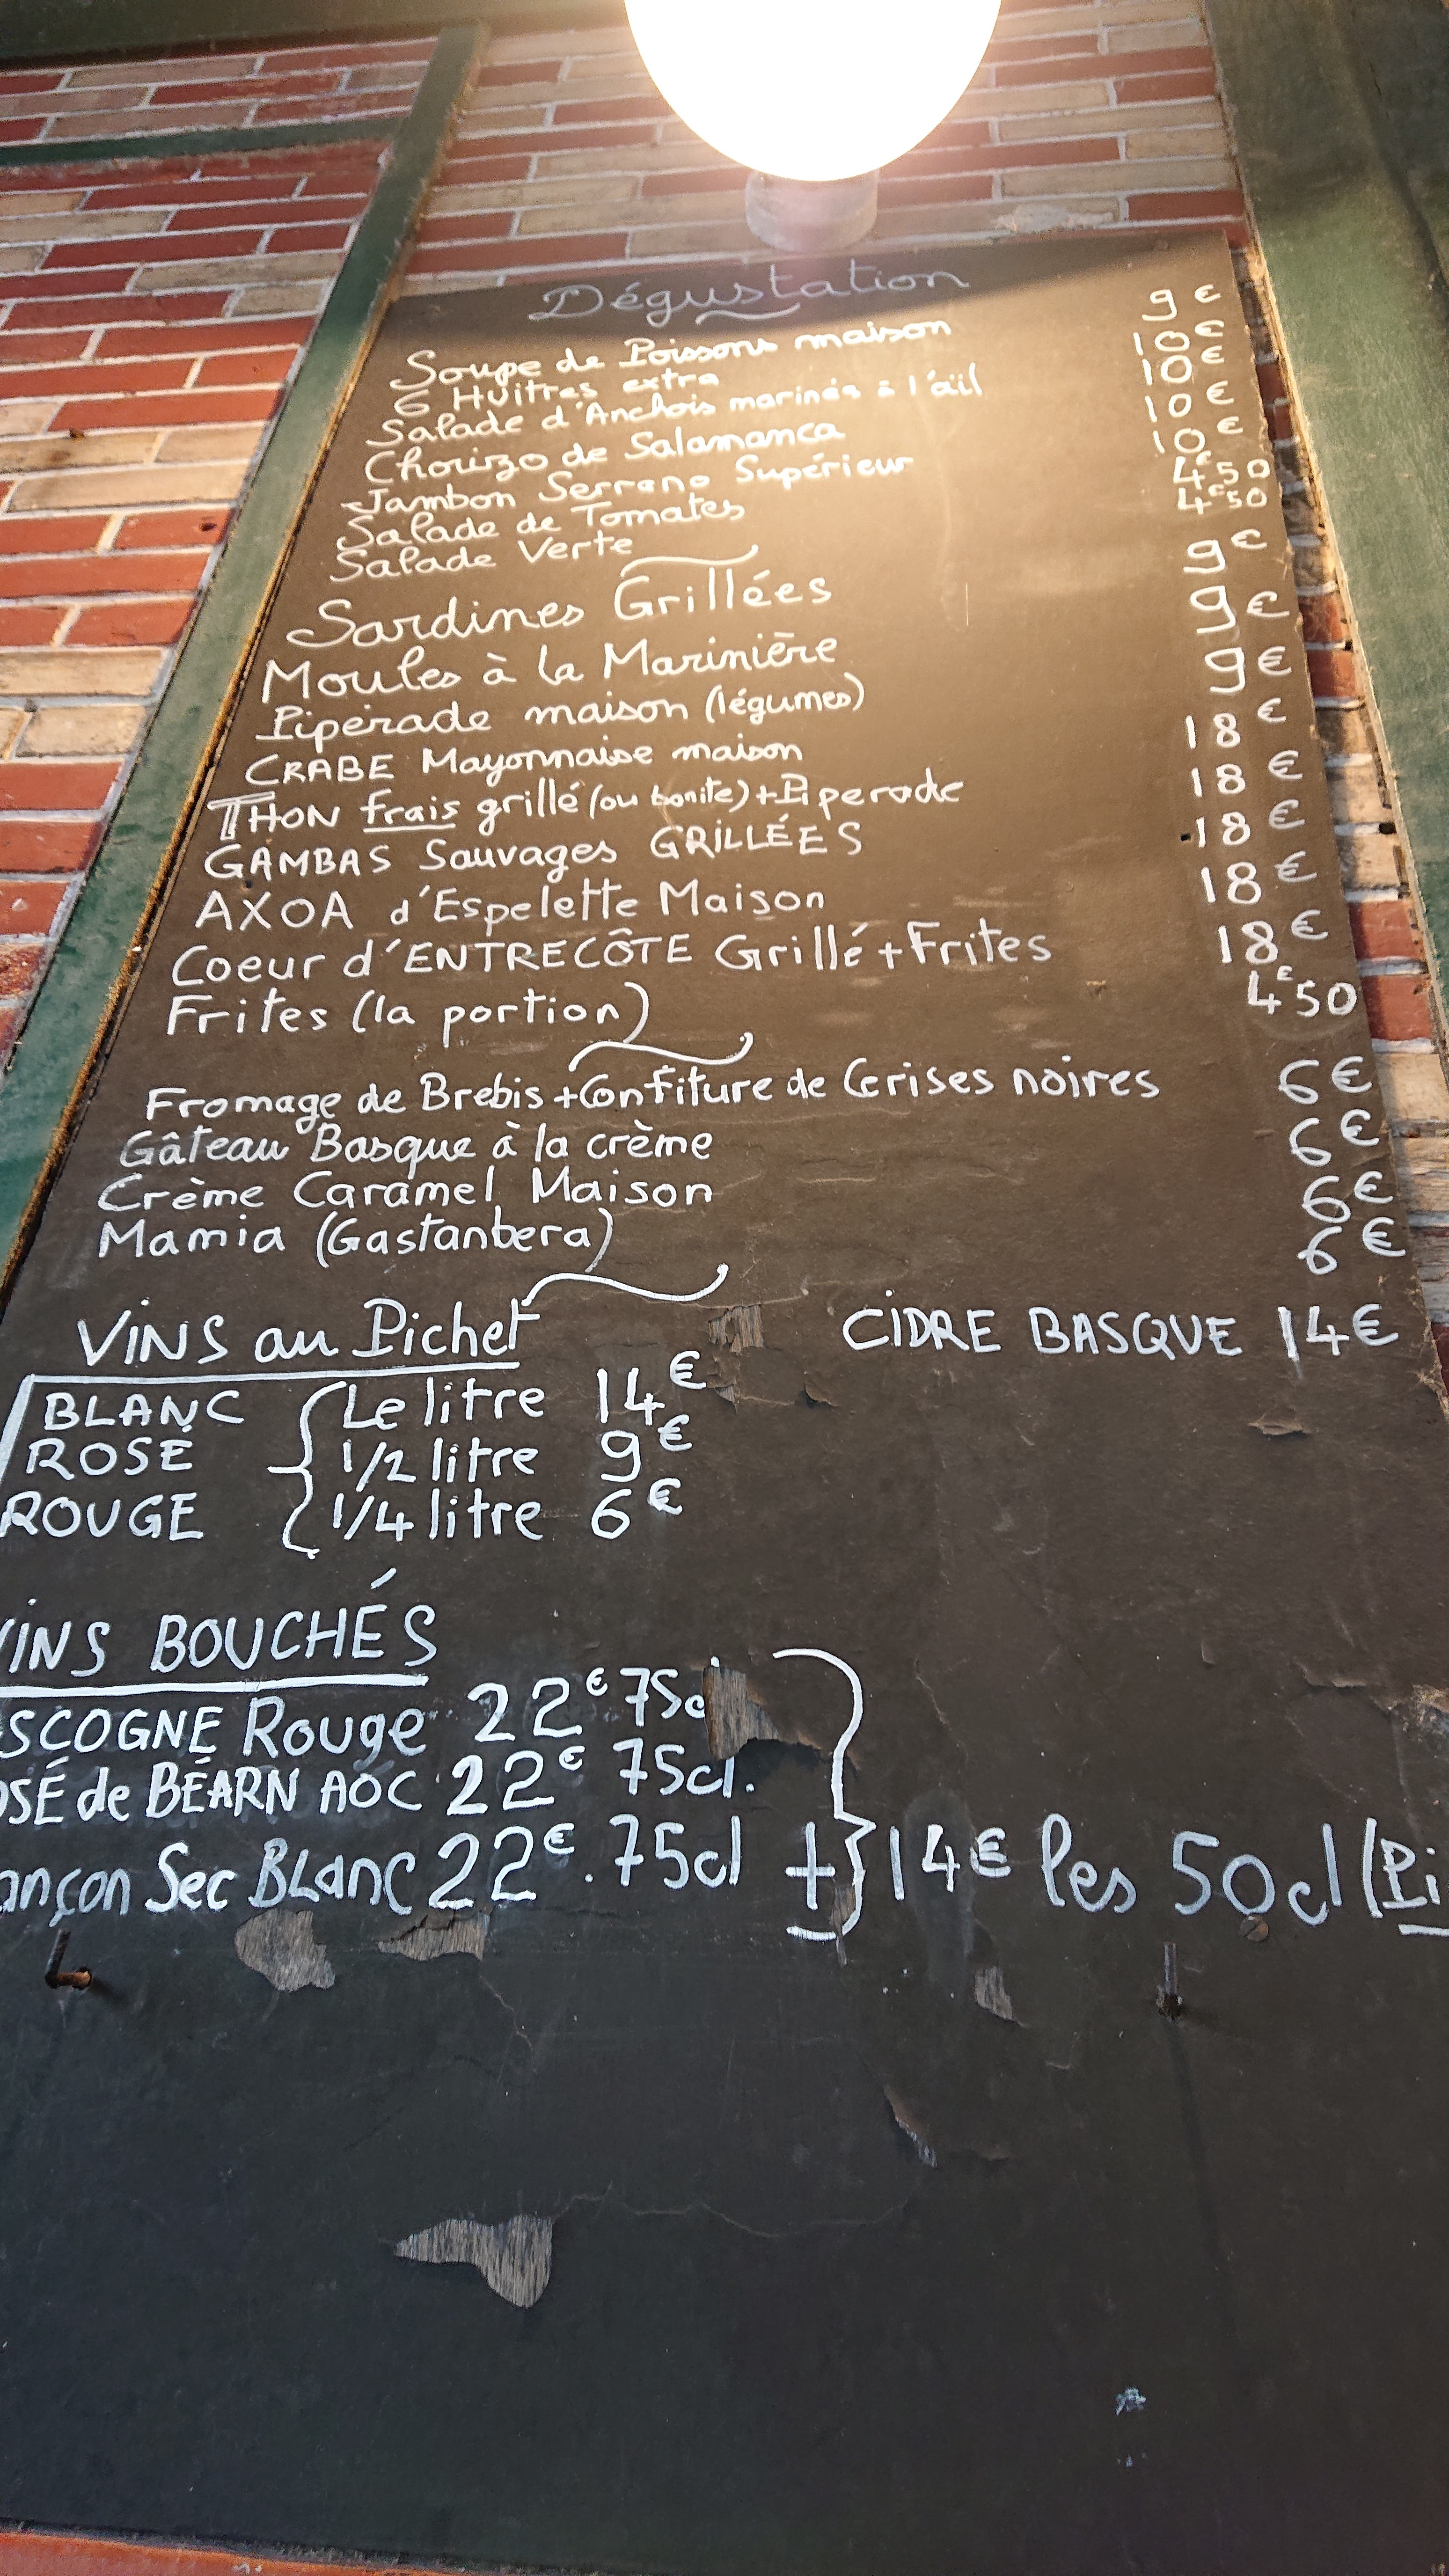 Dégustation
Soupe de Poissons maison 9€
6 Huitres extra 10€
Salade d'Anchois marinés à l'ail 10€
Chorizo de Salamanca 10€
Jambon Serrano Supérieur 10€
Salade de Tomates 4€50
Salade Verte 4€50
Sardines Grillées 9€
Moules à la Marinière 9€
Piperade maison (légumes) 9€
CRABE Mayonnaise maison 18€
THON frais grillé (ou bonite) + Piperade 18€
GAMBAS Sauvages GRILLÉES 18€
AXOA d'Espelette Maison 18€
Coeur d'ENTRECÔTE Grillé + Frites 18€
Frites (la portion) 4€50
Fromage de Brebis + Confiture de Cerises noires 6€
Gâteau Basque à la crème 6€
Crème Caramel Maison 6€
Mamia (Gastanbera) 6€
VINS au Pichet CIDRE BASQUE 14€
BLANC Le litre 14€
ROSÉ 1/2 litre 9€
ROUGE 1/4 litre 6€
VINS BOUCHÉS
SCOGNE Rouge 22€ 75c
OSÉ de BÉARN AOC 22€ 75cl.
ançon Sec BLanc 22€. 75cl + 14€ les 50cl (Pi